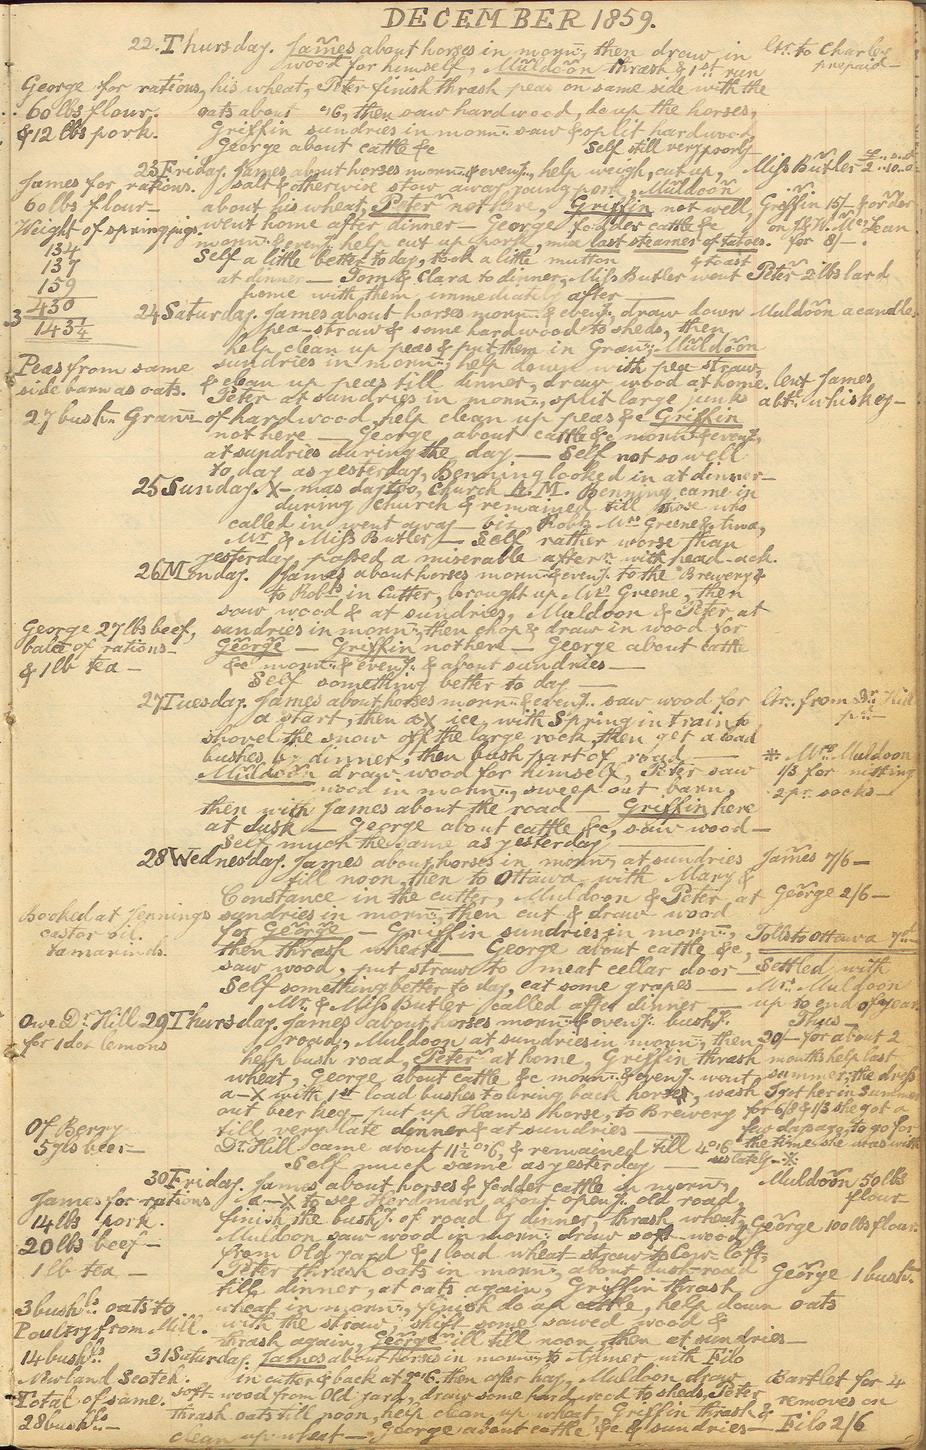 DECEMBER 1859.
22. Thursday. James about horses in morng, then draw in
wood for himself, Muldoon thrash & 1st run
George for rations, his wheat, Peter finish thrash peas on same side with the
60 lbs flour. oats about o'16, then saw hardwood, do up the horses,
& 12 lbs pork. Griffin sundries in morng. saw & split hardwood
George about cattle &c Self still very poorly
ltr. to Charley
prepaid—
23 Friday. James about horses morng. & eveng., help weigh, cut up, Miss Butler 2..10..0
James for rations. salt & otherwise stow away young pork, Muldoon
60 lbs flour— about his wheat, Peter not here, Griffin not well, Griffin 15/- & order
Weight of spring pigs. went home after dinner— George fodder cattle &c on J & W. McLean
134 morng. & eveng. help cut up pork, mix last steamer of tatoes. for 8/-.
137 Self a little better to day, took a little mutton & toast
159 at dinner— Tom & Clara to dinner, Miss Butler went Peter 2 lbs lard
430 home with them immediately after—
3
143¼
24 Saturday. James about horses morng. & eveng. draw down Muldoon a candle.
pea-straw & some hardwood to sheds, then
help clean up peas & put them in Gran., Muldoon
Peas from same sundries in morng., help down with pea straw,
side barn as oats. & clean up peas till dinner, draw wood at home. lent James
Peter at sundries in morng., split large junks abt. whiskey—
27 bush. Gran. of hardwood, help clean up peas &c Griffin
not here— George about cattle &c morng & eveng.,
at sundries during the day— Self not so well
to day as yesterday, Benning looked in at dinner—
25 Sunday. X-mas day too, Church A.M. Benning came in
during church & remained till those who
called in went away— viz, Robt. Mrs Greene & twa,
Mr. & Miss Butler— Self rather worse than
yesterday passed a miserable aftern. with head-ach.
26 Monday. James about horses morng. & eveng. to the Brewery &
to Rob's in Cutter, brought up Mrs Greene, then
saw wood & at sundries, Muldoon & Peter at
George 27 lbs beef, sundries in morng., then chop & draw in wood for
balce of rations— George— Griffin not here— George about cattle
& 1 lb tea— &c morng. & eveng. & about sundries—
Self something better to day—
27 Tuesday. James about horses morng. & eveng. saw wood for ltr. from Dr. Hill
a start, then a-X ice with Spring in train to
shovel the snow off the large rock, then get a load
bushes by dinner, then bush part of road— * Mrs. Muldoon
Muldoon draw wood for himself, Peter saw 1/3 for nitting
wood in morng., sweep out barn, 2 pr. socks—
then with James about the road— Griffin here
at dusk— George about cattle &c, saw wood—
Self much the same as yesterday—
28 Wednesday. James about horses in morng, at sundries James 7/6—
till noon, then to Ottawa with Mary &
Constance in the cutter, Muldoon & Peter, at George 2/6—
Booked at Jennings sundries in morng., then cut & draw wood
castor oil for George— Griffin sundries in morng.,
tamarinds. then thrash wheat— George about cattle &c, Tolls to Ottawa
saw wood, put straw to meat cellar door— Settled with
Self something better to day, eat some grapes— Mrs. Muldoon
Mr. & Miss Butler called after dinner— up to end of year
Owe Dr. Hill 29 Thursday. James about horses morng. & eveng. bushg. Thus—
for 1 doz lemons road, Muldoon at sundries in morng, then 30/- for about 2
help bush road, Peter at home, Griffin thrash months help last
wheat, George about cattle &c morng. & eveng. went summer, the dress
a-X with 1st load bushes to bring back horses, wash I got her in summer
out beer keg— put up Ham's horse, to Brewery for 6/8 & 1/3 she got a
Of Berry till very late dinner & at sundries— few days ago, to go for
5 gls beer— Dr. Hill came about 11½ o'16, & remained till 4 o'16— the time she was with
Self much same as yesterday— us lately—*
30 Friday. James about horses & fodder cattle in morng., Muldoon 50 lbs
James for rations a-X to see Herdman about openg. old road, flour
14 lbs pork. finish the bushg. of road by dinner, thrash wheat, George 100 lbs flour.
20 lbs beef— Muldoon saw wood in morng. draw soft wood
from Old yard & 1 load wheat straw to Cow loft,
1 lb tea— Peter thrash oats in morng., about bush-road George 1 bush.
till dinner, at oats again, Griffin thrash
3 bushls. oats to wheat in morng., finish do up cattle, help down oats
Poultry from Mill. with the straw, shift some sawed wood &
thrash again, George ill till noon, then at sundries—
14 bushls 31 Saturday. James about horses in morng. to Aylmer with Filo
Norland Scotch. in cutter & back at 2 o'16. then after hay, Muldoon draw Bartlet for 4
Total of same. soft wood from Old yard, draw some hardwood to sheds, Peter removes on
28 bushls.— thrash oats till noon, help clean up wheat, Griffin thrash & Filo 2/6
clean up wheat— George about cattle &c & sundries—